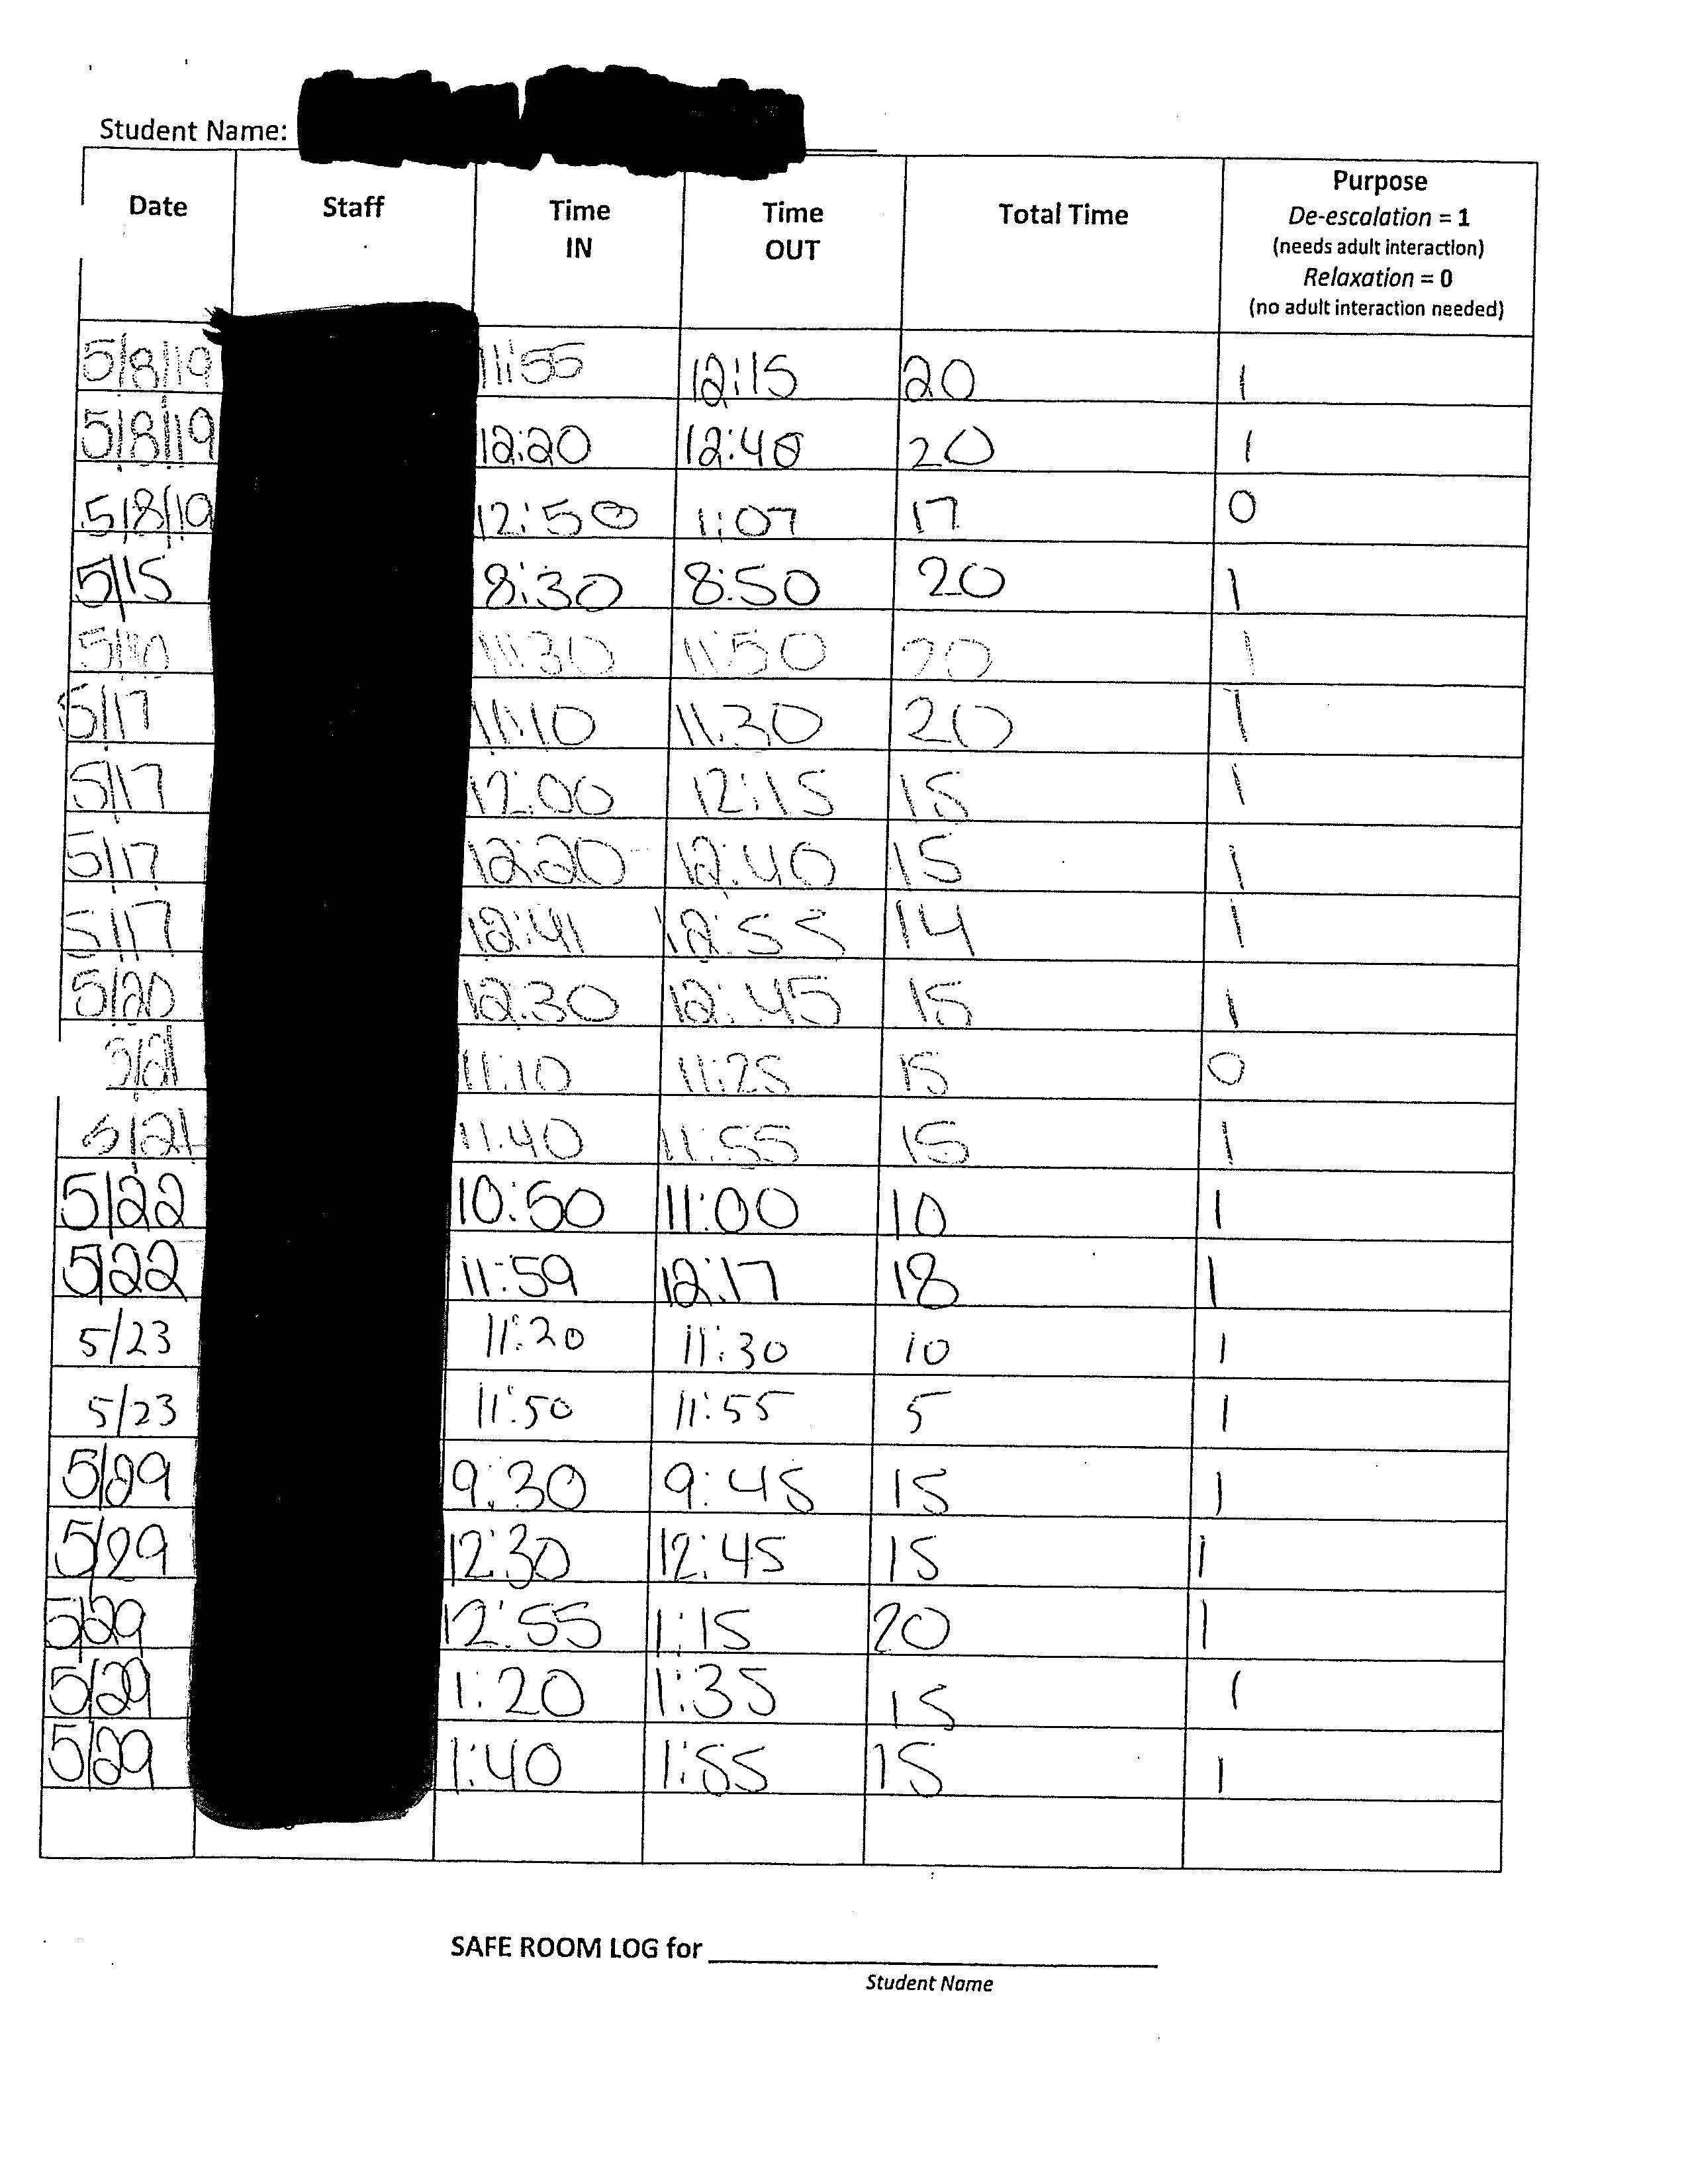 Student Name:
Date Staff Time IN Time OUT Total Time Purpose
De-escalation = 1
(needs adult interaction)
Relaxation = 0
(no adult interaction needed)
5/8/19 11:55 12:15 20 1
5/8/19 12:20 12:40 20 1
5/8/19 12:50 1:07 17 0
5/15 8:30 8:50 20 1
11:30 11:50 20 1
5/17 11:10 11:30 20 1
5/17 12:00 12:15 15 1
5/17 12:20 12:40 15 1
5/17 12:41 12:55 14 1
5/20 12:30 12:45 15 1
11:10 11:25 15 0
5/21 11:40 11:55 15 1
5/22 10:50 11:00 10 1
5/22 11:59 12:17 18 1
5/23 11:20 11:30 10 1
5/23 11:50 11:55 5 1
5/29 9:30 9:45 15 1
5/29 12:30 12:45 15 1
5/29 12:55 1:15 20 1
5/29 1:20 1:35 15 1
5/29 1:40 1:55 15 1
SAFE ROOM LOG for
Student Name